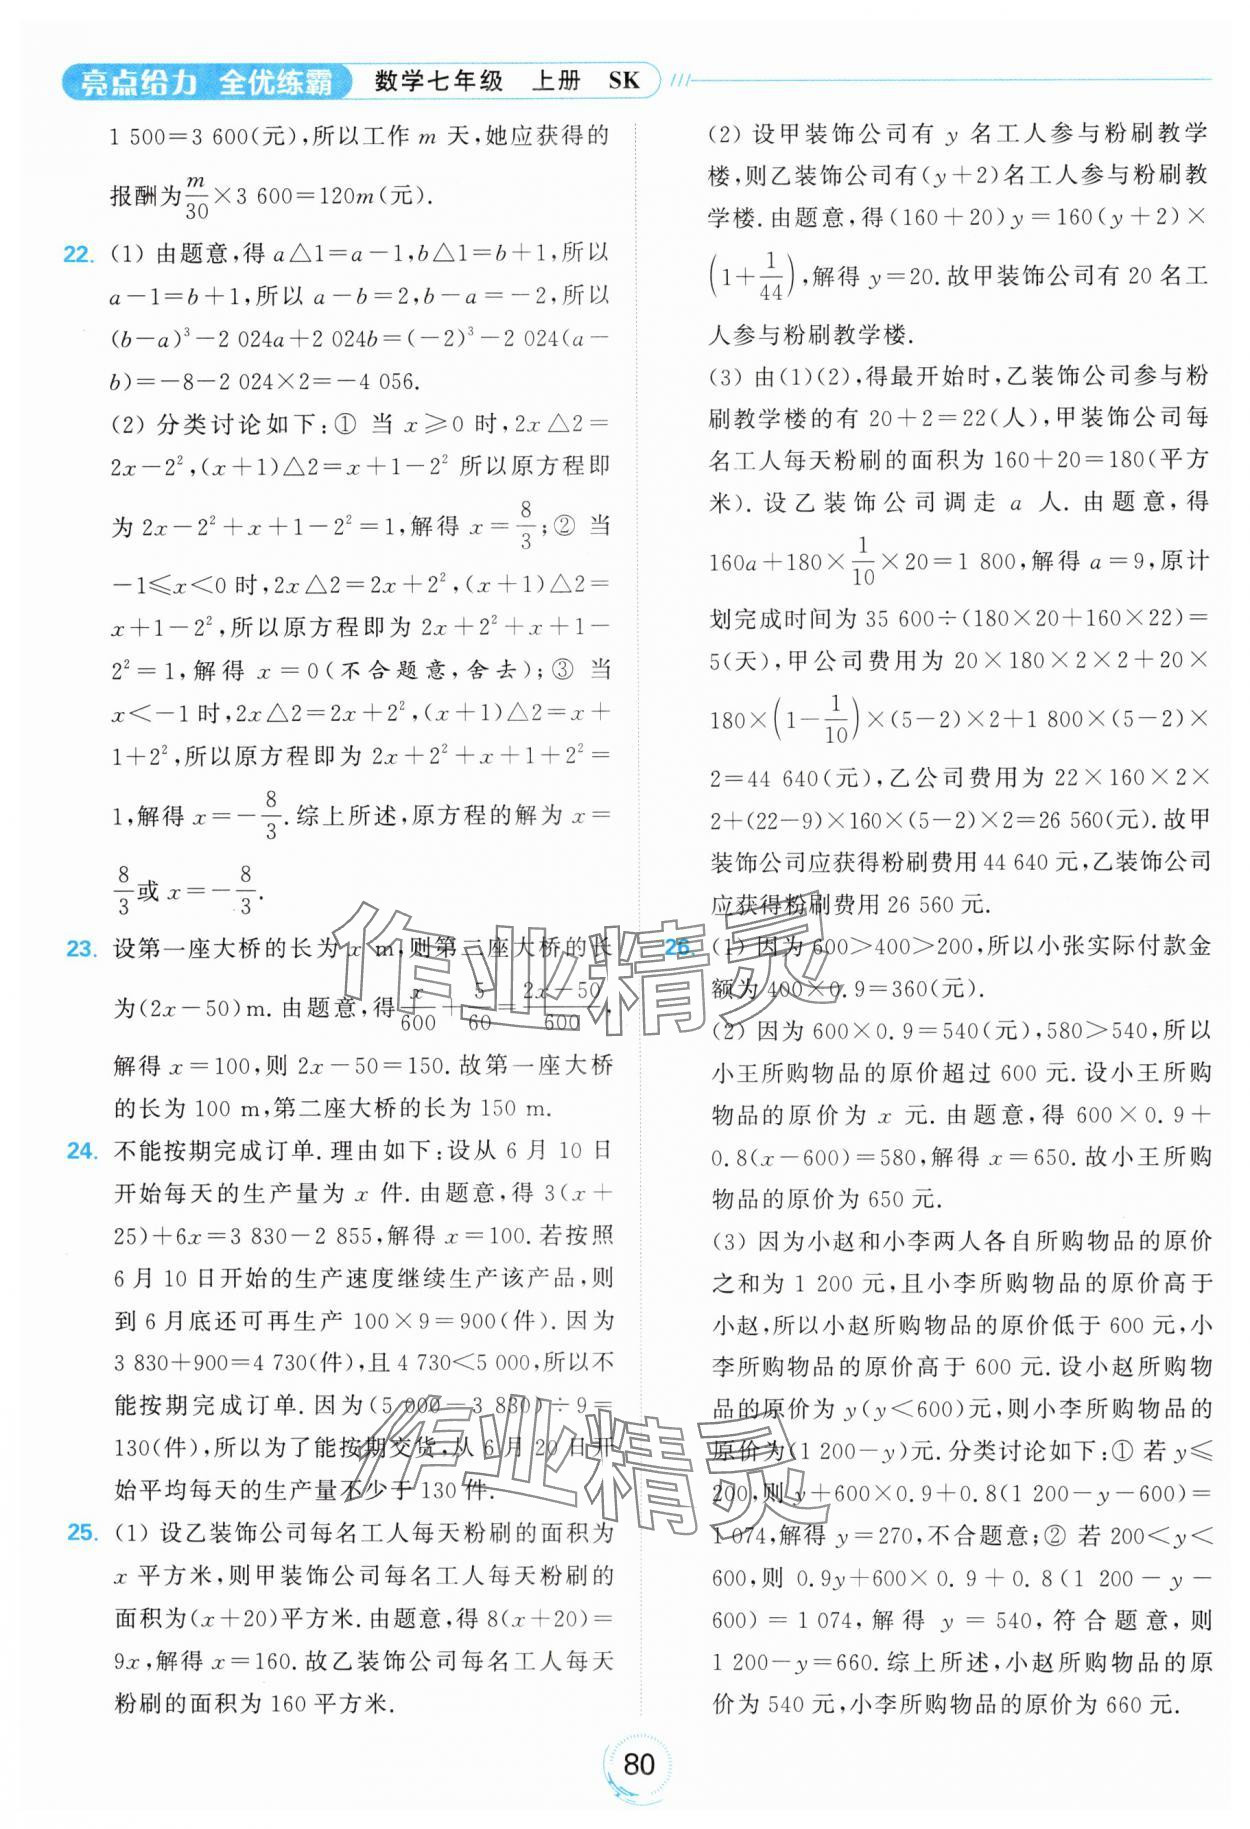 亮点给力 全优练霸 数学七年级 上册 SK
1 500=3 600(元),所以工作 m 天,她应获得的
报酬为m/30×3 600=120m(元).
22. (1) 由题意,得 a△1=a-1,b△1=b+1,所以
a-1=b+1,所以 a-b=2,b-a=-2,所以
(b-a)³-2 024a+2 024b=(-2)³-2 024(a-
b)=-8-2 024×2=-4 056.
(2) 分类讨论如下:① 当 x≥0 时,2x△2=
2x-2²,(x+1)△2=x+1-2² 所以原方程即
为 2x-2²+x+1-2²=1,解得 x=8/3;② 当
-1≤x<0 时,2x△2=2x+2²,(x+1)△2=
x+1-2²,所以原方程即为 2x+2²+x+1-
2²=1,解得 x=0(不合题意,舍去);③ 当
x<-1 时,2x△2=2x+2²,(x+1)△2=x+
1+2²,所以原方程即为 2x+2²+x+1+2²=
1,解得 x=-8/3.综上所述,原方程的解为 x=
8/3或 x=-8/3.
23. 设第一座大桥的长为 x m,则第二座大桥的长
为(2x-50)m.由题意,得x/600+5/60=2x-50/600,
解得 x=100,则 2x-50=150.故第一座大桥
的长为 100 m,第二座大桥的长为 150 m.
24. 不能按期完成订单.理由如下:设从 6 月 10 日
开始每天的生产量为 x 件.由题意,得 3(x+
25)+6x=3 830-2 855,解得 x=100.若按照
6 月 10 日开始的生产速度继续生产该产品,则
到 6 月底还可再生产 100×9=900(件).因为
3 830+900=4 730(件),且 4 730<5 000,所以不
能按期完成订单.因为(5 000-3 830)÷9=
130(件),所以为了能按期交货,从 6 月 20 日开
始平均每天的生产量不少于 130 件.
25. (1) 设乙装饰公司每名工人每天粉刷的面积为
x 平方米,则甲装饰公司每名工人每天粉刷的
面积为(x+20)平方米.由题意,得 8(x+20)=
9x,解得 x=160.故乙装饰公司每名工人每天
粉刷的面积为 160 平方米.
(2) 设甲装饰公司有 y 名工人参与粉刷教学
楼,则乙装饰公司有(y+2)名工人参与粉刷教
学楼.由题意,得(160+20)y=160(y+2)×
(1+1/44),解得 y=20.故甲装饰公司有 20 名工
人参与粉刷教学楼.
(3) 由(1)(2),得最开始时,乙装饰公司参与粉
刷教学楼的有 20+2=22(人),甲装饰公司每
名工人每天粉刷的面积为 160+20=180(平方
米).设乙装饰公司调走 a 人.由题意,得
160a+180×1/10×20=1 800,解得 a=9,原计
划完成时间为 35 600÷(180×20+160×22)=
5(天),甲公司费用为 20×180×2×2+20×
180×(1-1/10)×(5-2)×2+1 800×(5-2)×
2=44 640(元),乙公司费用为 22×160×2×
2+(22-9)×160×(5-2)×2=26 560(元).故甲
装饰公司应获得粉刷费用 44 640 元,乙装饰公司
应获得粉刷费用 26 560 元.
26. (1) 因为 600>400>200,所以小张实际付款金
额为 400×0.9=360(元).
(2) 因为 600×0.9=540(元),580>540,所以
小王所购物品的原价超过 600 元.设小王所购
物品的原价为 x 元.由题意,得 600×0.9+
0.8(x-600)=580,解得 x=650.故小王所购
物品的原价为 650 元.
(3) 因为小赵和小李两人各自所购物品的原价
之和为 1 200 元,且小李所购物品的原价高于
小赵,所以小赵所购物品的原价低于 600 元,小
李所购物品的原价高于 600 元.设小赵所购物
品的原价为 y(y<600)元,则小李所购物品的
原价为(1 200-y)元.分类讨论如下:① 若 y≤
200,则 y+600×0.9+0.8(1 200-y-600)=
1 074,解得 y=270,不合题意;② 若 200<y<
600,则 0.9y+600×0.9+0.8(1 200-y-
600)=1 074,解得 y=540,符合题意,则
1 200-y=660.综上所述,小赵所购物品的原
价为 540 元,小李所购物品的原价为 660 元.
作业精灵
作业精灵
80